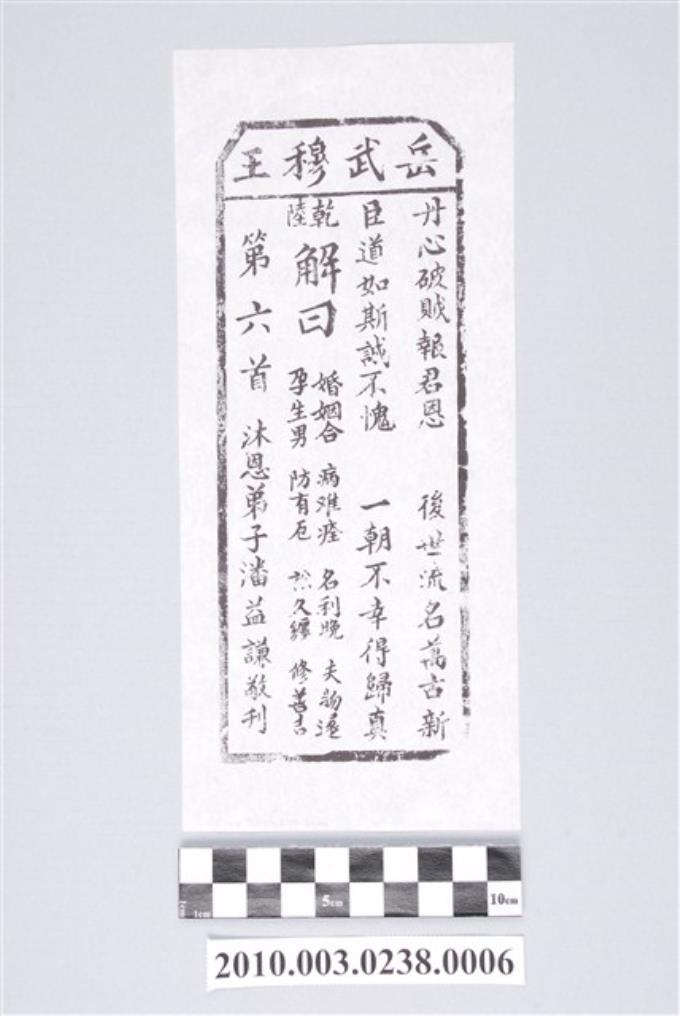 岳武穆王
丹心破賊報君恩 後世流名萬古新
臣道如斯誠不愧 一朝不幸得歸真
乾陸 解曰 婚姻合 病难痊 名利晚 失物遠
孕生男 防有厄 訟久纏 修善吉
第六首 沐恩弟子潘益謙敬刊
1cm
5cm
10cm
2010.003.0238.0006